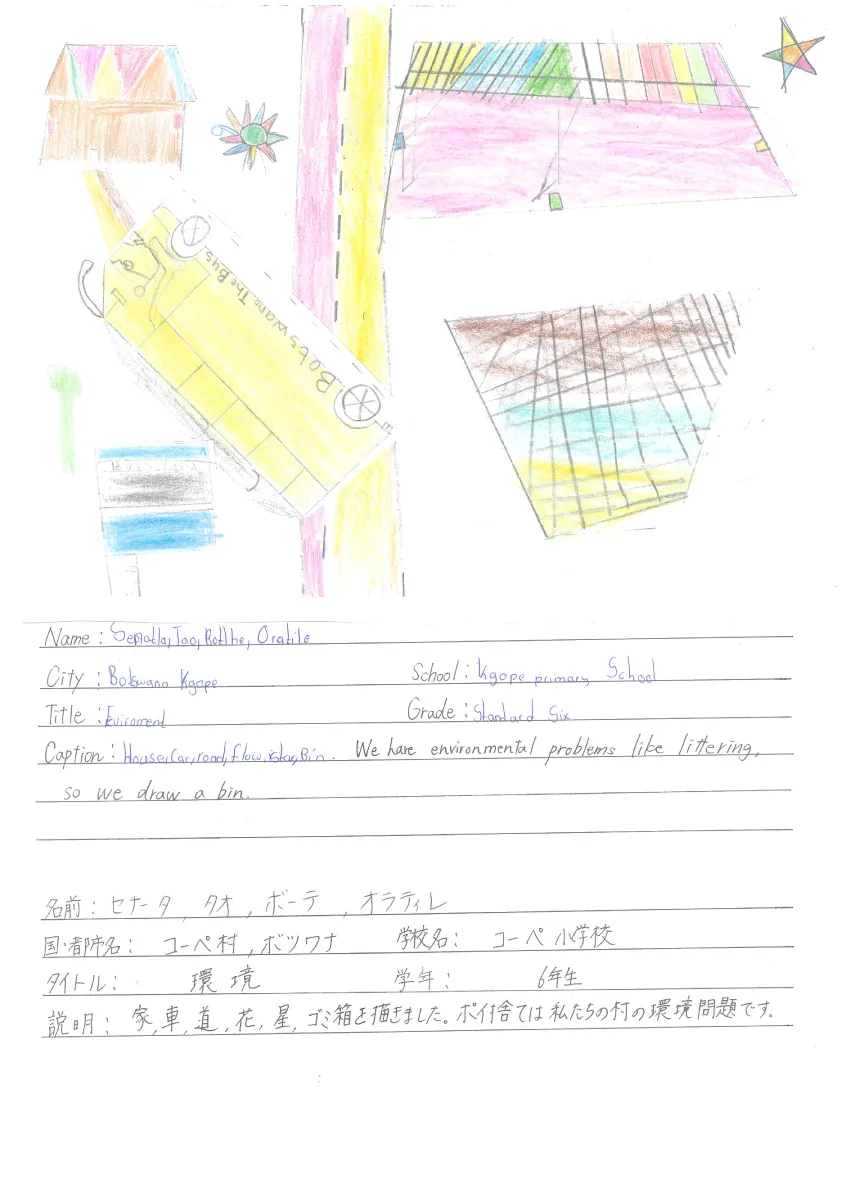 Botswana The Bus.
Name : Senatla, Tao, Botlhe, Oratile
City : Botswana Kgope
School : Kgope primary School
Title : Eviroment
Grade : Standard Six
Caption : House, Car, road, flow, star, Bin. We have environmental problems like littering,
so we draw a bin.
名前 : セナータ , タオ , ボーテ , オラティレ
国・都市名 : コーペ村 , ボツワナ
学校名 : コーペ 小学校
タイトル : 環境
学年 : 6年生
説明 : 家, 車, 道, 花, 星, ゴミ箱を描きました。ポイ捨ては私たちの村の環境問題です。